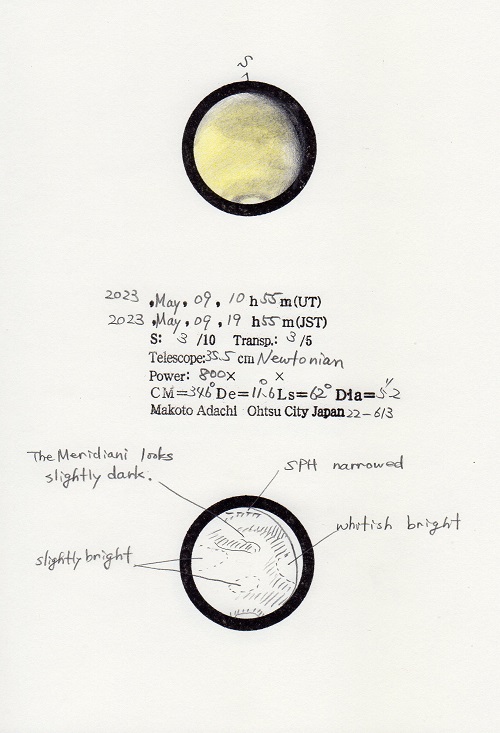 S
2023, May, 09, 10 h 55 m (UT)
2023, May, 09, 19 h 55 m (JST)
S: 3 /10 Transp.: 3 /5
Telescope: 35.5 cm Newtonian
Power: 800× ×
CM=346° De=11.6° Ls=62° Dia=5.2"
Makoto Adachi Ohtsu City Japan 22-613
The Meridiani looks
slightly dark.
SPH narrowed
whitish bright
slightly bright